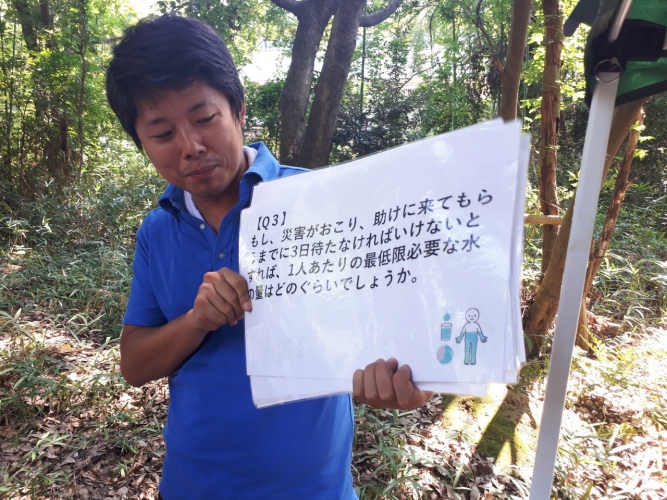 【Q3】
もし、災害がおこり、助けに来てもら
うまでに3日待たなければいけないと
すれば、1人あたりの最低限必要な水
の量はどのぐらいでしょうか。